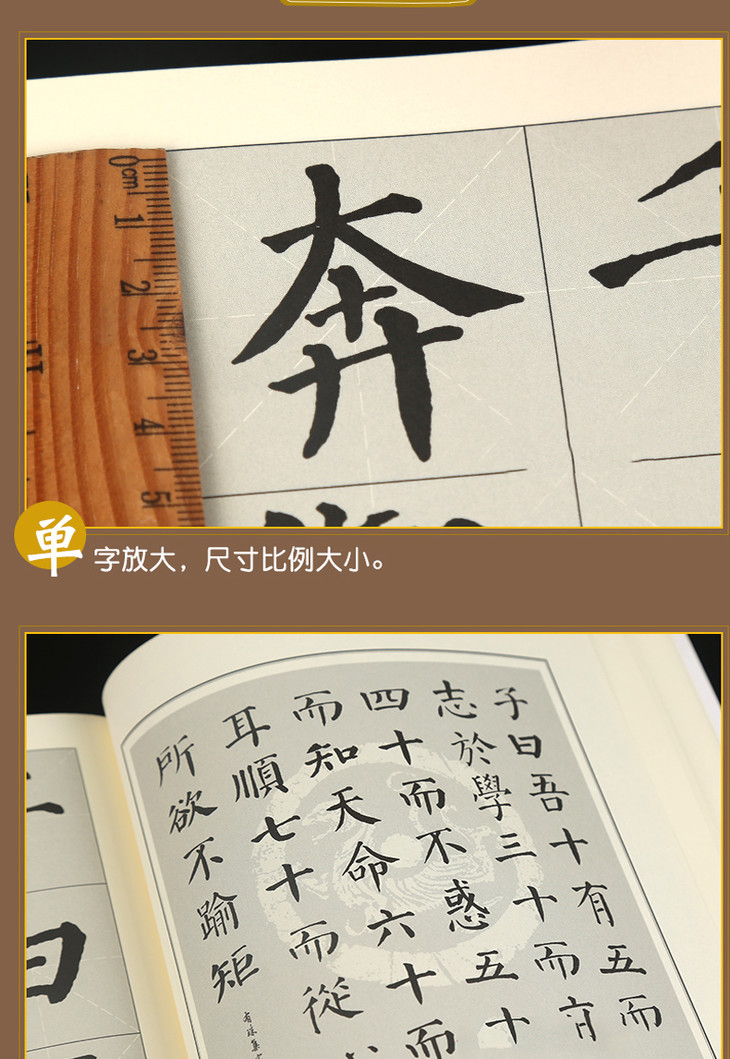 0cm 1 2 3 4 5
奔
单字放大，尺寸比例大小。
子曰吾十有五而
志於學三十而立
四十而不惑五十
而知天命六十而
耳順七十而從
所欲不踰矩
曰